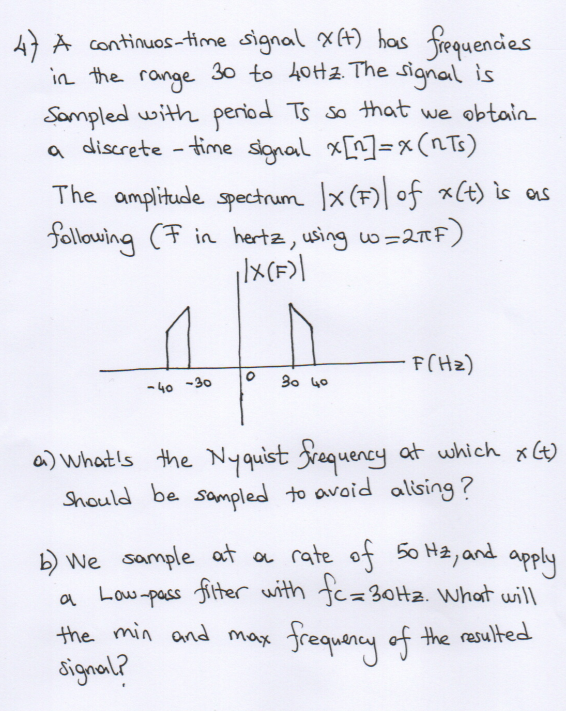 4) A continuos-time signal x(t) has frequencies
in the range 30 to 40Hz. The signal is
Sampled with period Ts so that we obtain
a discrete-time signal x[n]=x(nTs)
The amplitude spectrum |X(F)| of x(t) is as
following (F in hertz, using ω=2πF)
|X(F)|
F(Hz)
-40 -30 0 30 40
a) What's the Nyquist frequency at which x(t)
should be sampled to avoid alising?
b) We sample at a rate of 50 Hz, and apply
a Low-pass filter with fc=30Hz. What will
the min and max frequency of the resulted
signal?